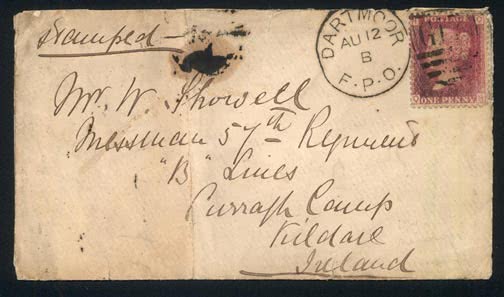 Stamped
DARTMOOR
AU 12
B
F.P.O.
POSTAGE
ONE PENNY
Mr. W Showell
Messman 57th Regiment
"B" Lines
Curragh Camp
Kildare
Ireland